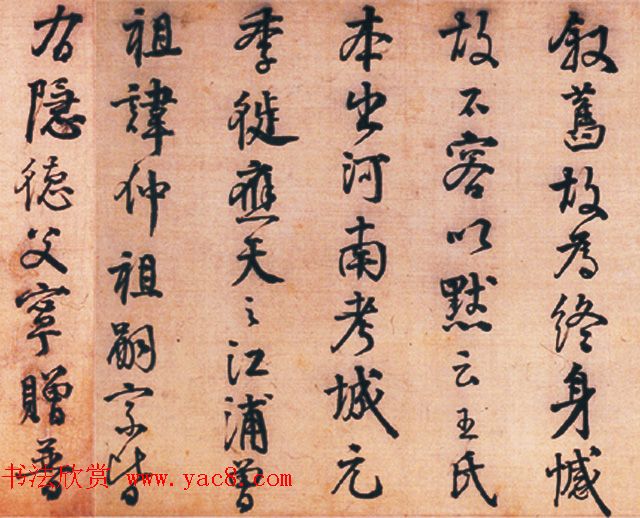 敘舊故為終身憾
故不容以默云王氏
本出河南考城元
季徙應天之江浦曾
祖諱仲祖嗣宗皆
有隱德父寧贈普
书法欣赏 www.yac8.com